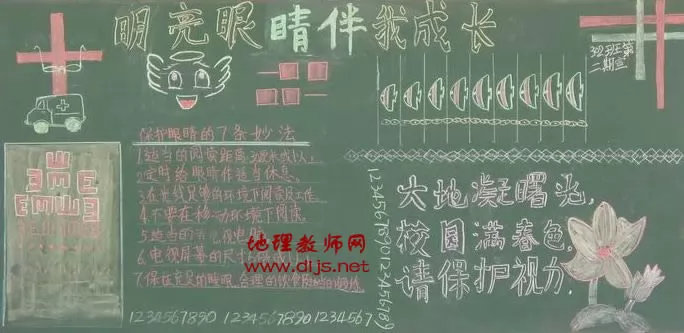 明亮眼睛伴我成长
32班第
二期宣
保护眼睛的7条妙法
1.适当的阅读距离,30厘米或以上。
2.定时给眼睛作适当休息。
3.在光线足够的环境下阅读及工作。
4.不要在移动环境下阅读。
5.适当的
6.电视屏幕的尺
7.保存充足的睡眠,合理的饮食
地理教师网
www.dljs.net
1234567890 1234567890 1234567
12345678901234567819
E
E M W E
大地凝曙光,
校园满春色,
请保护视力,